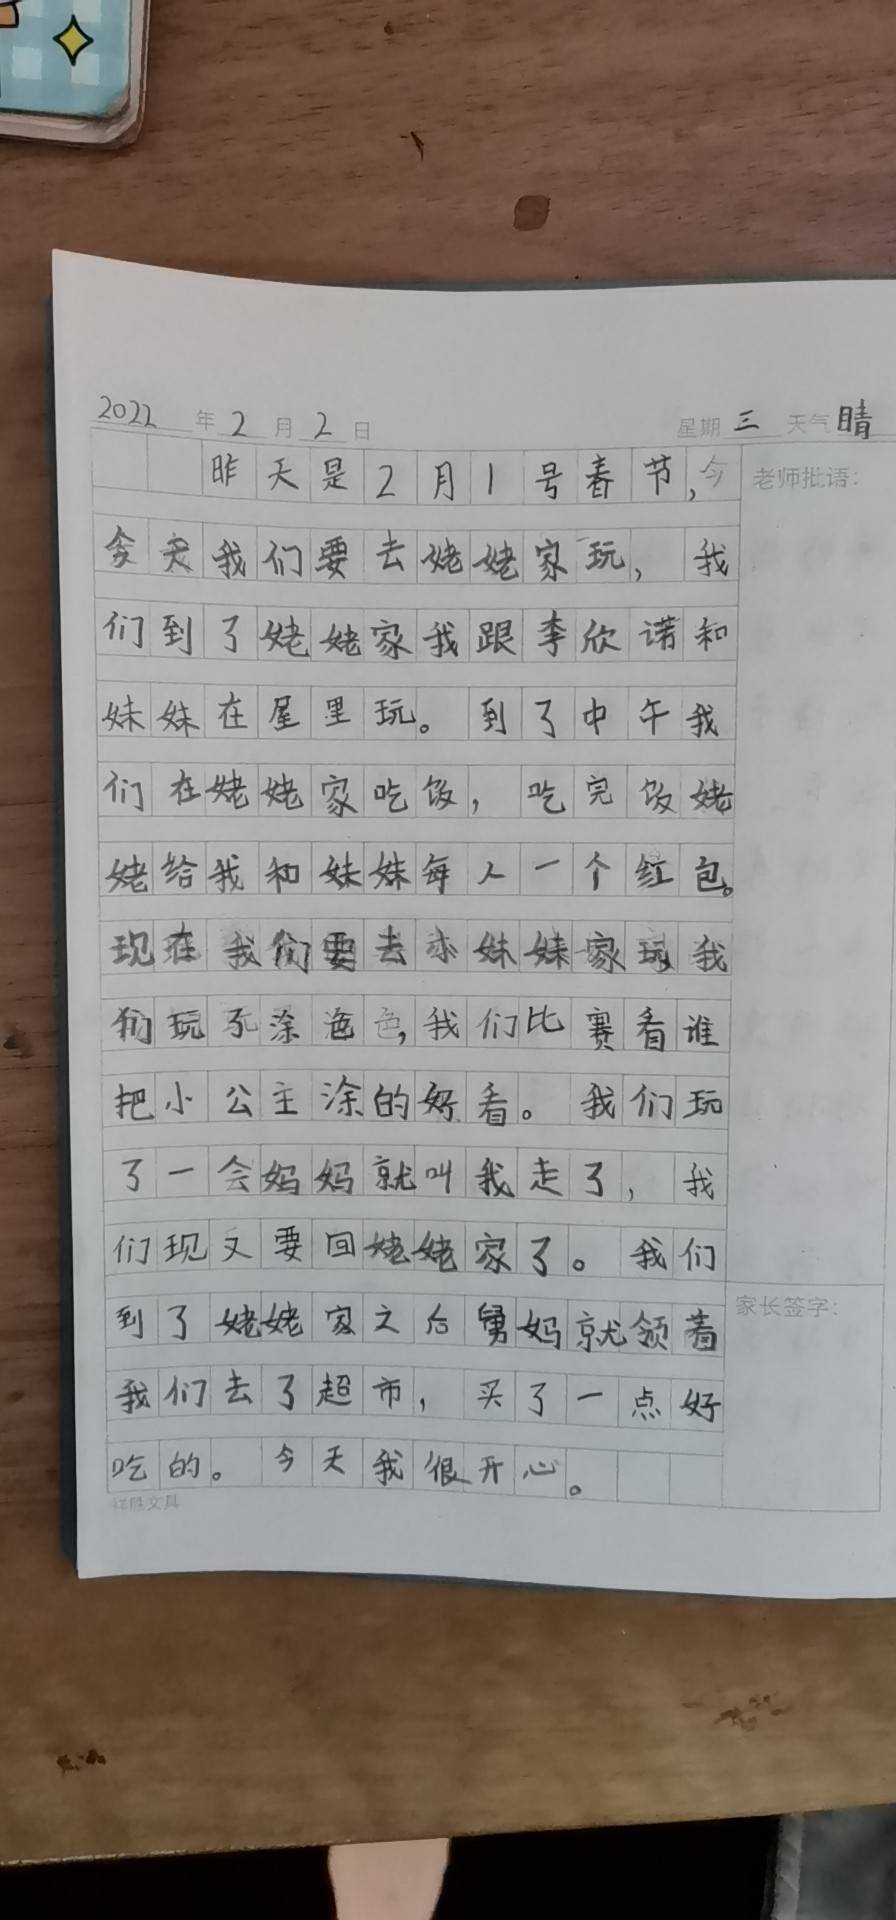 2022年2月2日 星期三 天气晴
昨天是2月1号春节,今
天我们要去姥姥家玩,我
们到了姥姥家我跟李欣诺和
妹妹在屋里玩。到了中午我
们在姥姥家吃饭,吃完饭姥
姥给我和妹妹每人一个红包。
现在我们要去 妹妹家玩我
们玩了涂色,我们比赛看谁
把小公主涂的好看。我们玩
了一会妈妈就叫我走了,我
们现又要回姥姥家了。我们
到了姥姥家之后舅妈就领着
我们去了超市,买了一点好
吃的。今天我很开心。
老师批语:
家长签字:
祥胜文具